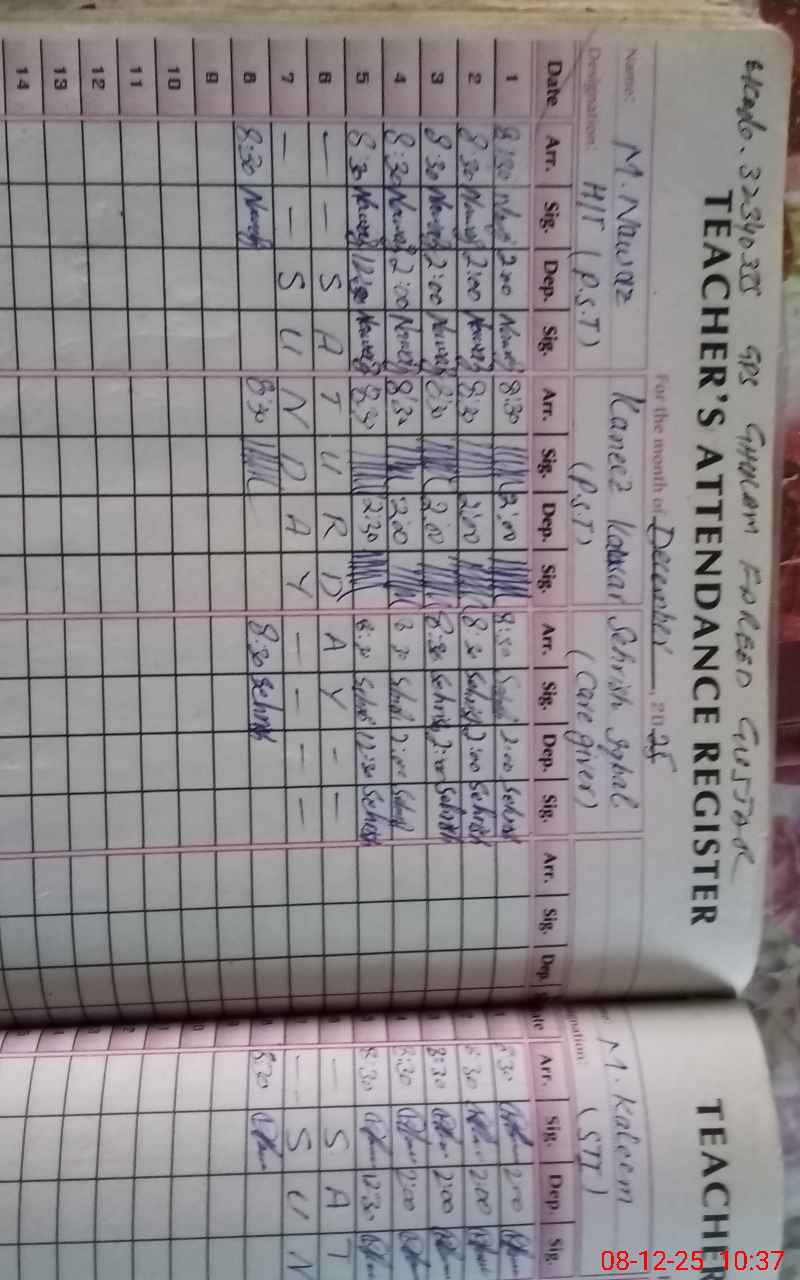 GPS GHULAM FAREED GUJJAR
TEACHER'S ATTENDANCE REGISTER
For the month of December, 2025
Name: M. Nawaz Kaneez Kousar Sehrish Iqbal
Designation: H/T (P.S.T) (P.S.T) (Care giver)
Date Arr. Sig. Dep. Sig. Arr. Sig. Dep. Sig. Arr. Sig. Dep. Sig. Arr. Sig. Dep.
1 8:30 2:00 8:30 2:00 8:30 2:00 Sehrish
2 8:30 Nawaz 2:00 Nawaz 8:30 2:00 8:30 Sehrish 2:00 Sehrish
3 8:30 Nawaz 2:00 Nawaz 8:30 2:00 8:30 Sehrish 2:00 Sehrish
4 8:30 Nawaz 2:00 Nawaz 8:30 2:00 8:30 2:00
5 8:30 Nawaz 12:30 Nawaz 8:30 12:30 8:30 12:30 Sehrish
6 — — S A T U R D A Y - -
7 — — S U N D A Y — — — —
8 8:30 Nawaz 8:30 8:30 Sehrish
9
10
11
12
13
14
TEACHER
M. Kaleem
(STI)
Arr. Sig. Dep. Sig.
1 8:30 2:00
2 8:30 2:00
3 8:30 2:00
4 8:30 2:00
5 8:30 12:30
6 — S A T
7 - - S U N
8 8:30
08-12-25 10:37